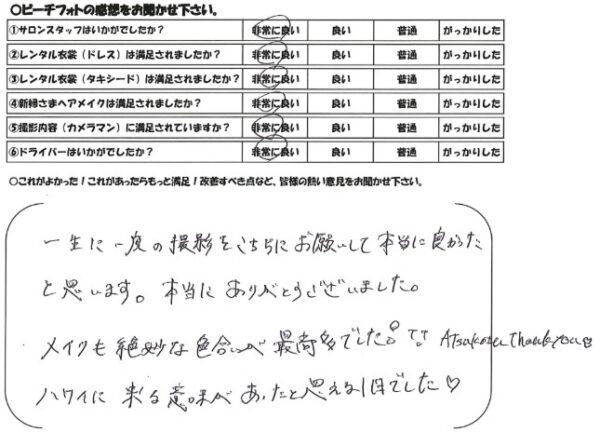 ○ビーチフォトの感想をお聞かせ下さい。
①サロンスタッフはいかがでしたか？ 非常に良い 良い 普通 がっかりした
②レンタル衣裳（ドレス）は満足されましたか？ 非常に良い 良い 普通 がっかりした
③レンタル衣裳（タキシード）は満足されましたか？ 非常に良い 良い 普通 がっかりした
④新婦さまヘアメイクは満足されましたか？ 非常に良い 良い 普通 がっかりした
⑤撮影内容（カメラマン）に満足されていますか？ 非常に良い 良い 普通 がっかりした
⑥ドライバーはいかがでしたか？ 非常に良い 良い 普通 がっかりした
○これがよかった！これがあったらもっと満足！改善すべき点など、皆様の熱い意見をお聞かせ下さい。
一生に一度の撮影をこちらにお願いして本当に良かった
と思います。本当にありがとうございました。
メイクも絶妙な色合いが最高でした。 thank you♡
ハワイに来る意味があったと思える1日でした♡